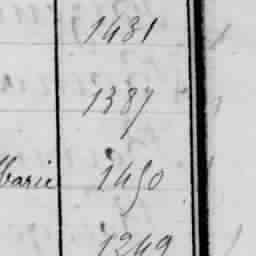 1431
1387
Marie 1450
1249